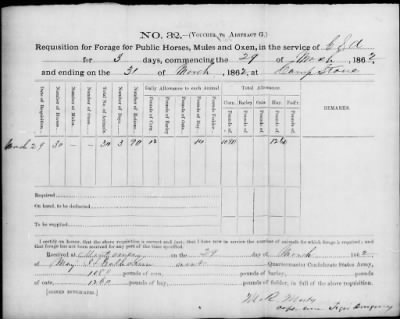 NO. 32.—(VOUCHER TO ABSTRACT G.)
Requisition for Forage for Public Horses, Mules and Oxen, in the service of C S A
for 3 days, commencing the 29 of March, 1862
and ending on the 31 of March, 1862, at Camp
Date of Requisition.
Number of Horses.
Number of Mules.
Number of Oxen.
Total No. of Animals.
Number of Days.
Number of Rations.
Daily Allowance to each Animal
Pounds of Corn.
Pounds of Barley
Pounds of Oats.
Pounds of Hay.
Pounds Fodder.
Total Allowance.
Corn. Barley. Oats. Hay. Fod'r.
Pounds of
Pounds of
Pounds of
Pounds of
Pounds of
REMARKS.
March 29 30 — 30 3 90 12 14 1080 1260
Required
On hand, to be deducted
To be supplied
I certify on honor, that the above requisition is correct and just, that I have now in service the number of animals for which forage is required; and
that forage has not been received for any part of the time specified.
Received at on the 29 day of March 1862
of Maj Quartermaster Confederate States Army,
1080 pounds of corn, pounds of barley, pounds
of oats, 1260 pounds of hay, pounds of fodder, in full of the above requisition.
[SIGNED DUPLICATES.]